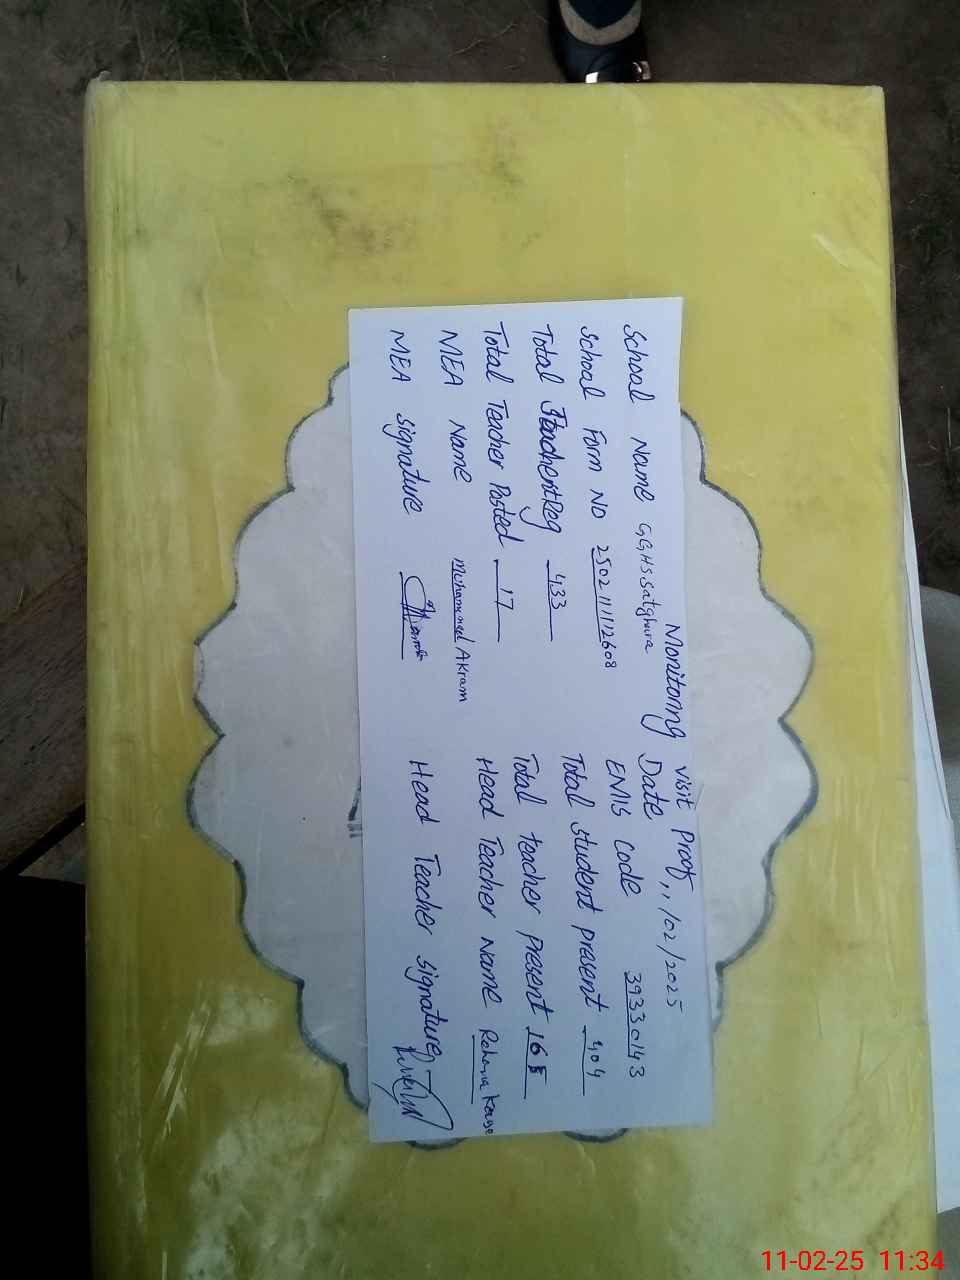 Monitoring visit Proof
School Name GGHS.Satghara Date ,,/02/2025
School Form No 25021112608 EMIS Code 39330143
Total Student Reg 433 Total student present 404
Total Teacher Posted 17 Total teacher present 16
MEA Name Muhammad Akram Head Teacher Name Rehana
MEA signature Head Teacher signature
11-02-25 11:34